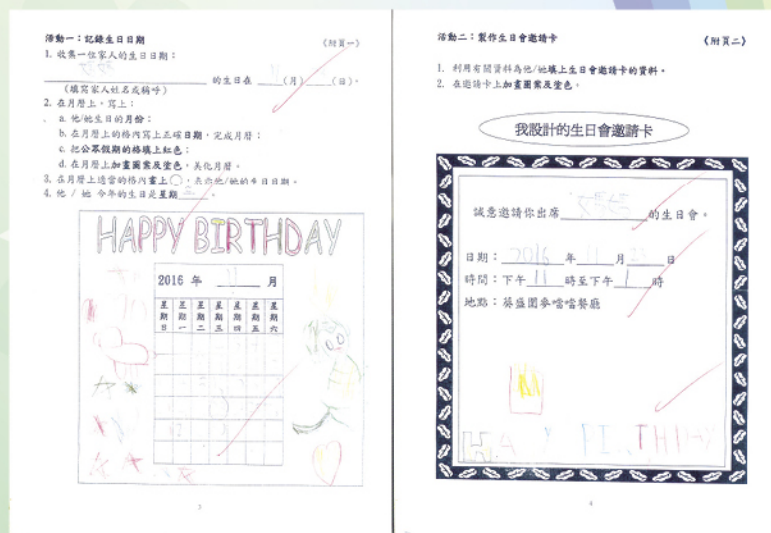 活動一：記錄生日日期
《附頁一》
1. 收集一位家人的生日日期：
的生日在 11 (月) (日)。
(填寫家人姓名或稱呼)
2. 在月曆上，寫上：
a. 他/她生日的月份；
b. 在月曆上的格內寫上正確日期，完成月曆；
c. 把公眾假期的格填上紅色；
d. 在月曆上加畫圖案及塗色，美化月曆。
3. 在月曆上適當的格內畫上○，表示他/她的生日日期。
4. 他 / 她 今年的生日是星期 。
HAPPY BIRTHDAY
2016 年 11 月
星期日 星期一 星期二 星期三 星期四 星期五 星期六
3
活動二：製作生日會邀請卡
《附頁二》
1. 利用有關資料為他/她填上生日會邀請卡的資料。
2. 在邀請卡上加畫圖案及塗色。
我設計的生日會邀請卡
誠意邀請你出席 的生日會。
日期： 2016 年 11 月 日
時間：下午 11 時至下午 1 時
地點：葵盛圍麥噹噹餐廳
4